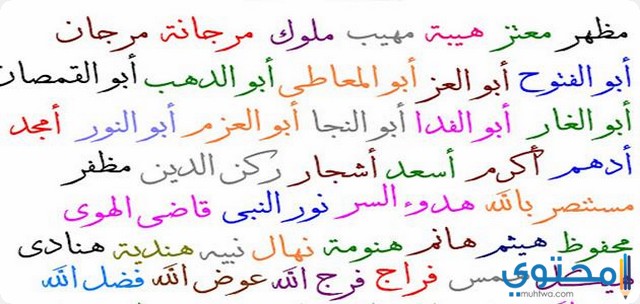 مظهر معتز هيبة مهيب ملوك مرجانة مرجان
أبو الفتوح أبو العز أبو المعاطى أبو الدهب أبو القمصان
أبو الغار أبو الفدا أبو النجا أبو العزم أبو النور أمجد
أدهم أكرم أسعد أشجار ركن الدين مظفر
مستنصر بالله هدوء السر نور النبى قاضى الهوى
محفوظ هيثم هانم هنومة نهال نبيه هندية هنادى
فراج فرج الله عوض الله فضل الله
محتوي
muhtwa.com